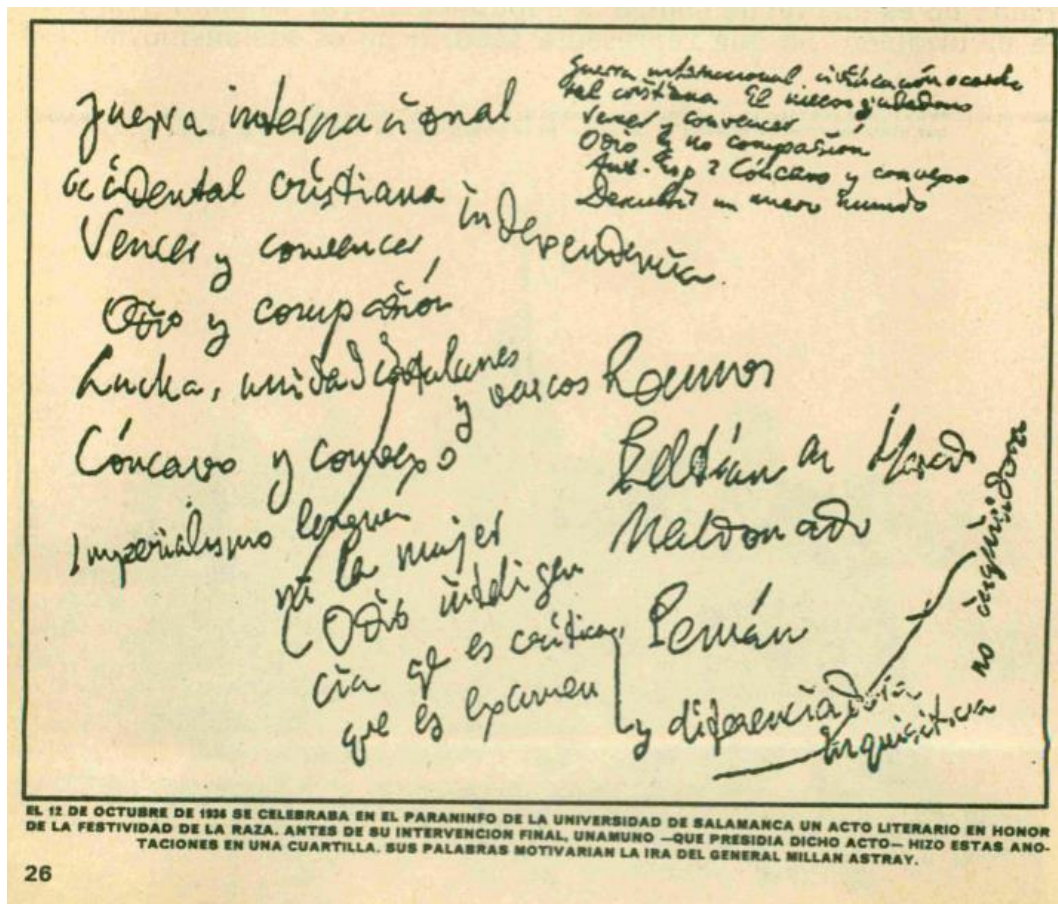 guerra internacional
occidental cristiana
independencia
Vencer y convencer
Odio y compasión
Lucha, unidad catalanes
y vascos
Cóncavo y convexo
Imperialismo lengua
ni la mujer
Odio inteligen
cia qe es crítica,
que es examen
y diferenciadora
inquisitiva no inquisidora
guerra internacional
tal cristiana
Vencer y convencer
Odio y no compasión
Ant. Esp? Cóncavo y convexo
Descubrir un nuevo mundo
Ramos
Beltrán de
Maldonado
Pemán
EL 12 DE OCTUBRE DE 1936 SE CELEBRABA EN EL PARANINFO DE LA UNIVERSIDAD DE SALAMANCA UN ACTO LITERARIO EN HONOR
DE LA FESTIVIDAD DE LA RAZA. ANTES DE SU INTERVENCION FINAL, UNAMUNO —QUE PRESIDIA DICHO ACTO— HIZO ESTAS ANO-
TACIONES EN UNA CUARTILLA. SUS PALABRAS MOTIVARIAN LA IRA DEL GENERAL MILLAN ASTRAY.
26